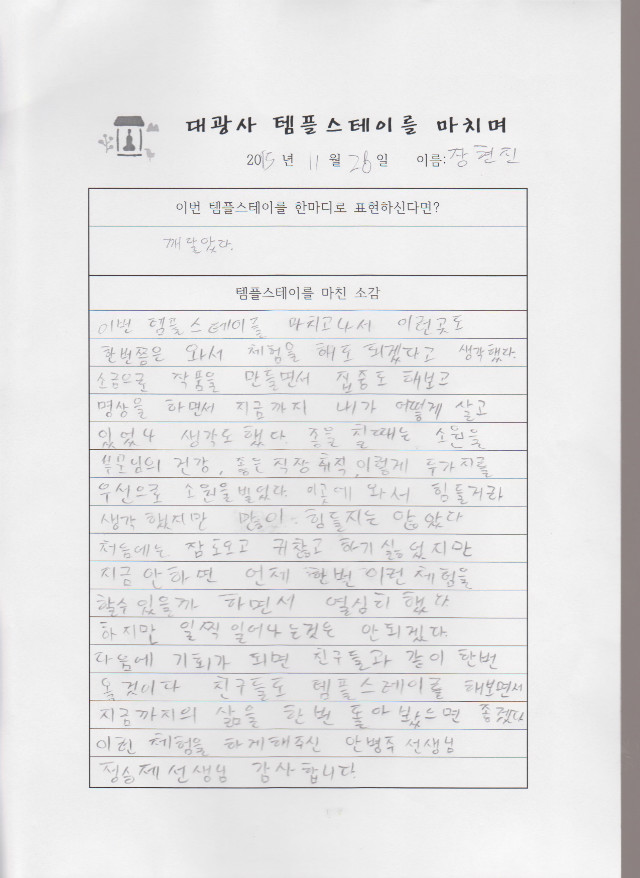 대광사 템플스테이를 마치며
2015 년 11 월 28 일 이름: 장현진
이번 템플스테이를 한마디로 표현하신다면?
깨달았다.
템플스테이를 마친 소감
이번 템플스테이를 마치고나서 이런곳도
한번쯤은 와서 체험을 해도 되겠다고 생각했다.
소금으로 작품을 만들면서 집중도 해보고
명상을 하면서 지금까지 내가 어떻게 살고
있었나 생각도 했다 종을 칠때는 소원을
부모님의 건강, 좋은 직장 취직, 이렇게 두가지를
우선으로 소원을 빌었다. 이곳에 와서 힘들거라
생각 했지만 많이 힘들지는 않았다
처음에는 잠도오고 귀찮고 하기 싫었지만
지금 안하면 언제 한번 이런 체험을
할수 있을까 하면서 열심히 했다
하지만 일찍 일어나는것은 안되겠다.
다음에 기회가 되면 친구들과 같이 한번
올것이다 친구들도 템플스테이를 해보면서
지금까지의 삶을 한번 돌아봤으면 좋겠다
이런 체험을 하게해주신 안병주 선생님
선생님 감사합니다.